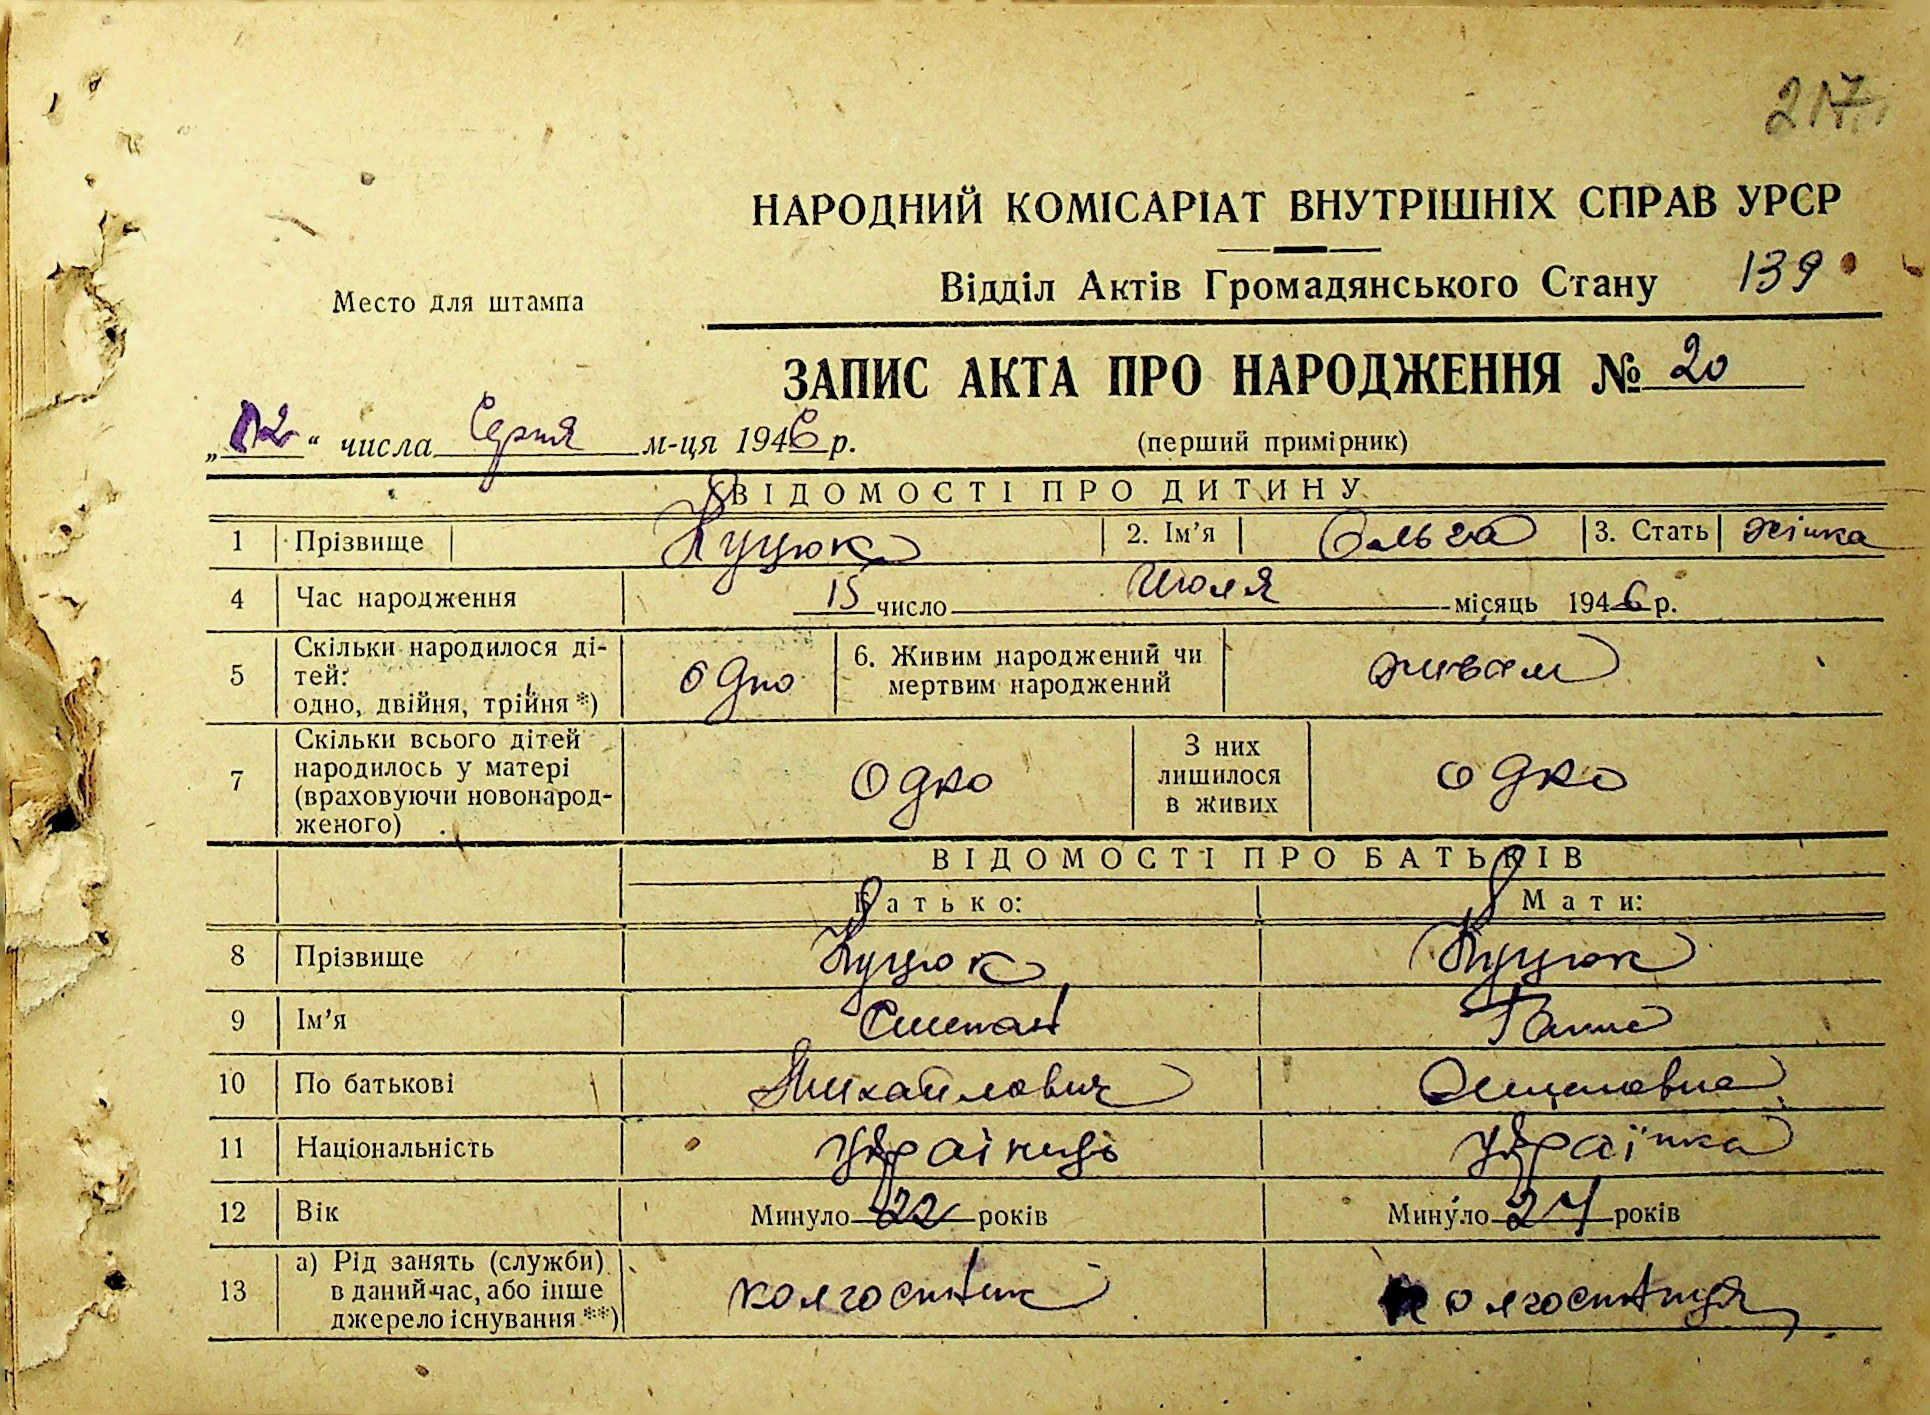 217
НАРОДНИЙ КОМІСАРІАТ ВНУТРІШНІХ СПРАВ УРСР
Відділ Актів Громадянського Стану 139
Место для штампа
ЗАПИС АКТА ПРО НАРОДЖЕННЯ № 20
„12“ числа Серпня м-ця 1946 р. (перший примірник)
ВІДОМОСТІ ПРО ДИТИНУ
1 Прізвище Куцюк 2. Ім’я Ольга 3. Стать жінка
4 Час народження 15 число Июля місяць 1946 р.
5 Скільки народилося ді-
тей:
одно, двійня, трійня *) одно 6. Живим народжений чи
мертвим народжений живим
7 Скільки всього дітей
народилось у матері
(враховуючи новонарод-
женого) одно З них
лишилося
в живих одно
ВІДОМОСТІ ПРО БАТЬКІВ
Батько: Мати:
8 Прізвище Куцюк Куцюк
9 Ім’я Степан Ганна
10 По батькові Михайлович
11 Національність українець українка
12 Вік Минуло 22 років Минуло 24 років
13 а) Рід занять (служби)
в даний час, або інше
джерело існування **) колгоспник колгоспниця